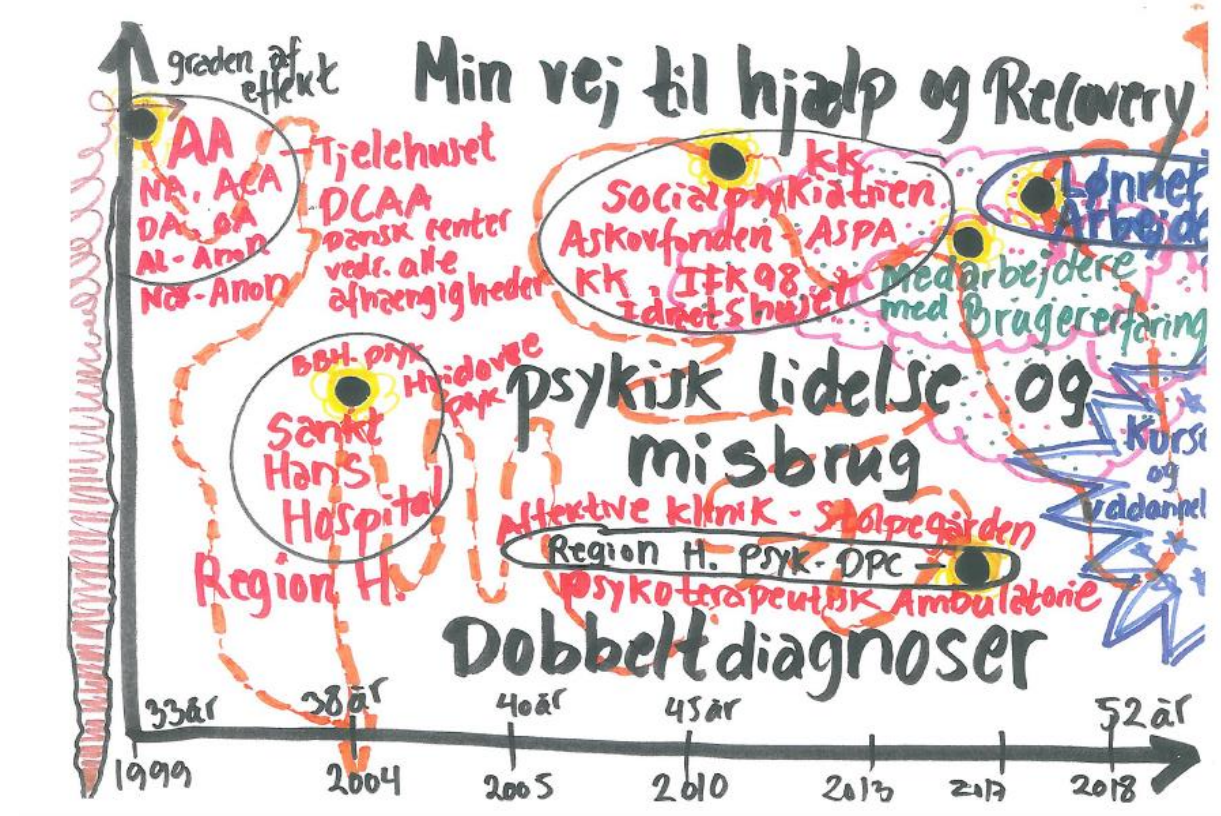 graden af
effekt
Min vej til hjælp og Recovery
AA
NA, ACA
DA, OA
Al-Anon
Nar-Anon
Tjelehuset
DCAA
Dansk center
vedr. alle
afhængigheder
KK
Socialpsykiatrien
Askovfonden - ASPA
KK, IFK98
Idrætshuset
Lønnet
Arbejde
Medarbejdere
med Brugererfaring
BBH. psyk
Hvidovre
psyk
Sankt
Hans
Hospital
Region H.
psykisk lidelse og
misbrug
Kurse
og
uddannel
Affektive klinik - Stolpegården
Region H. psyk - DPC -
psykoterapeutisk Ambulatorie
Dobbeltdiagnoser
33 år
38 år
40 år
45 år
52 år
1999
2004
2005
2010
2013
2017
2018